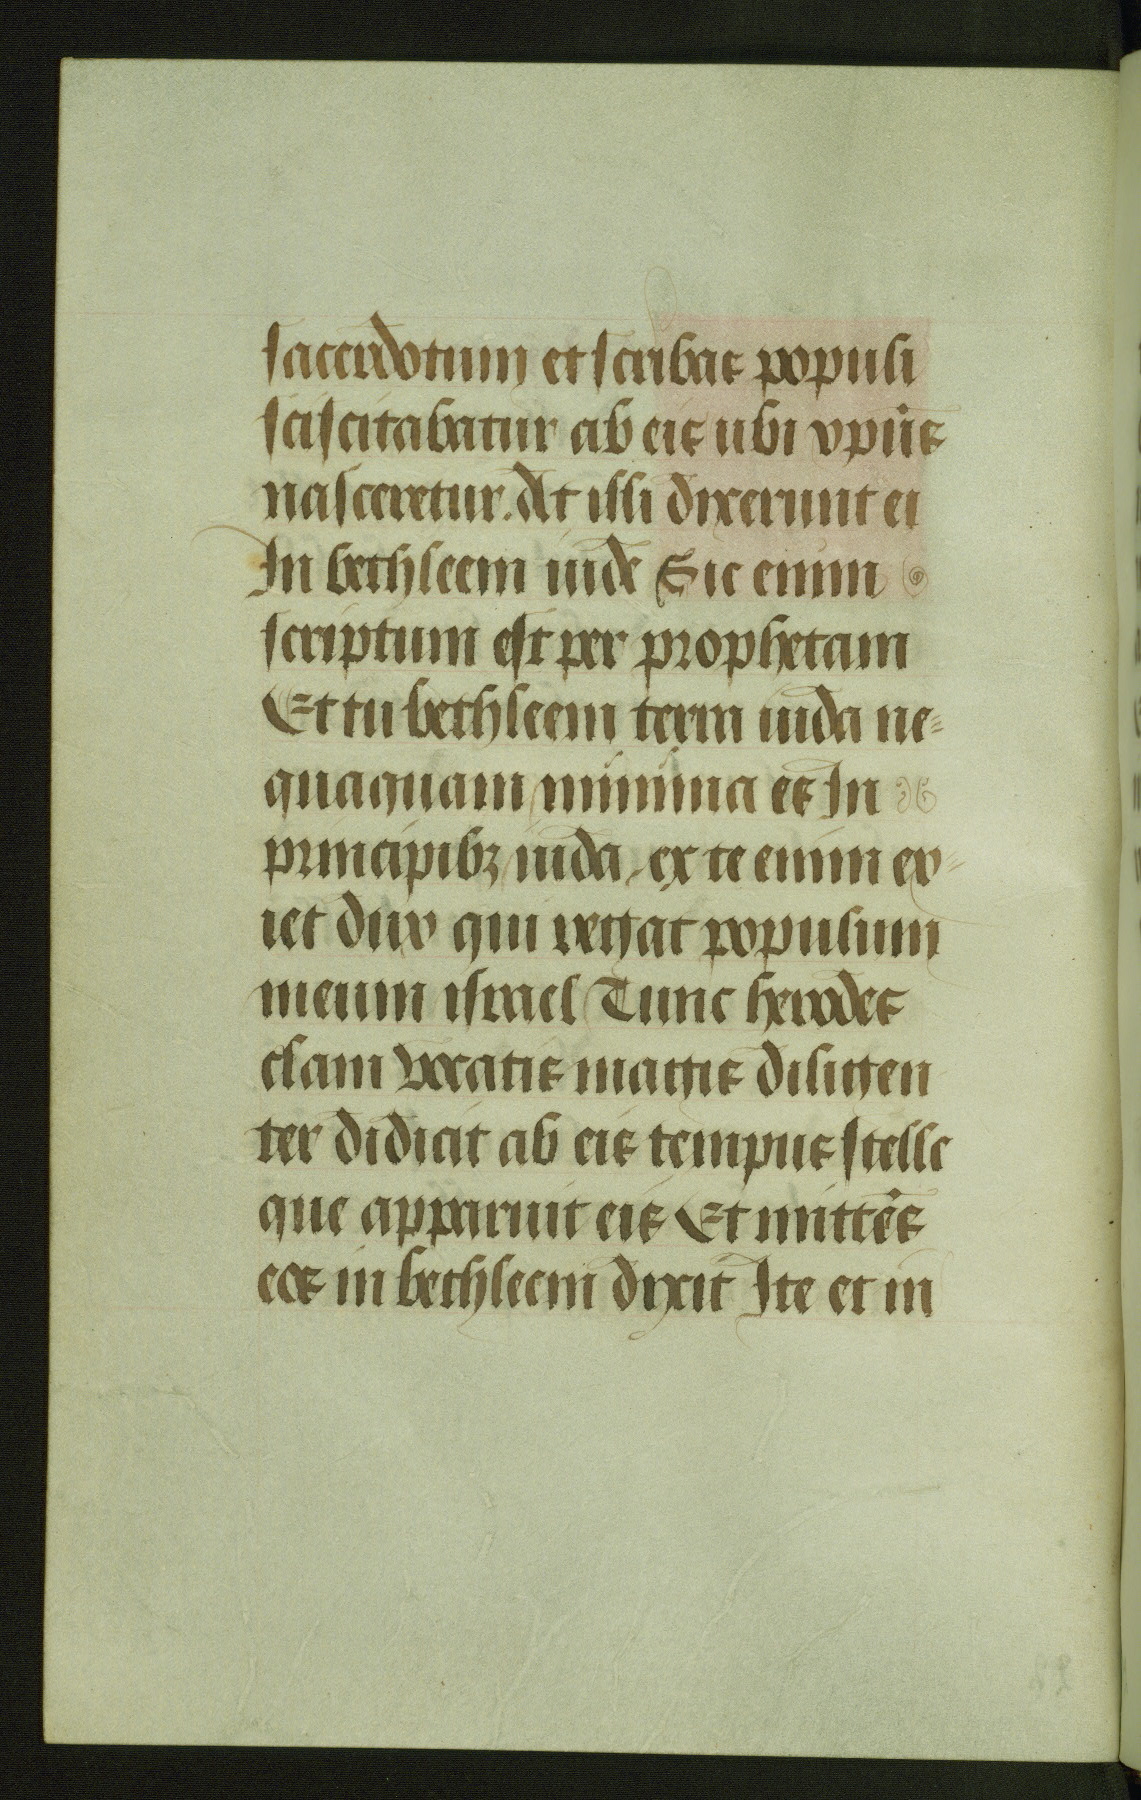 sacerdotum et scribas populi
sciscitabatur ab eis ubi xp̄us
nasceretur. At illi dixerunt ei
In bethleem iude Sic enim
scriptum est per prophetam
Et tu bethleem terra iuda ne=
quaquam minima es In
principibꝫ iuda. ex te enim ex=
iet dux qui regat populum
meum israel Tunc herodes
clam vocatis magis diligen
ter didicit ab eis tempus stelle
que apparuit eis Et mittēs
eos in bethleem dixit Ite et in